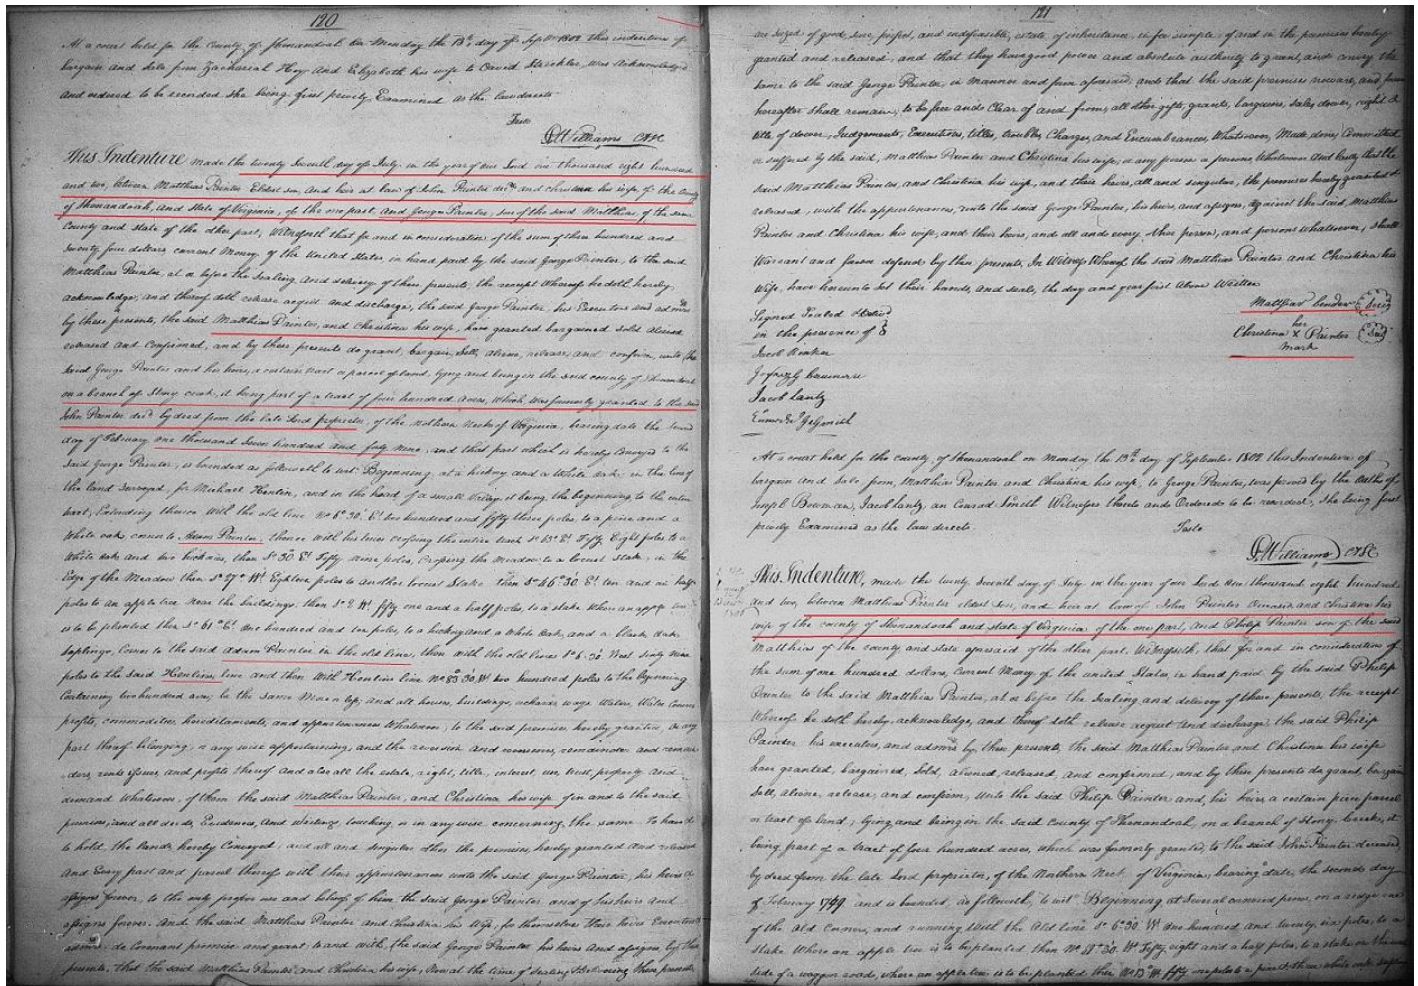 120
At a court held for the County of Shenandoah on Monday the 13th day of Septr 1802 this indenture of
bargain and sale from Zachariah Hoy And Elizabeth his wife to David Strickler was Acknowledged
and ordered to be recorded she being first privily Examined as the law directs
Teste
P Williams
This Indenture made the twenty Seventh day of July in the year of our Lord one thousand eight hundred
and two, between Matthias Painter Eldest son, and heir at law of John Painter decd and christina his wife, of the County
of Shenandoah, and State of Virginia, of the one part, and George Painter, son of the said Matthias of the same
County and state of the other part, Witnesseth that for and in consideration of the sum of three hundred and
twenty four dollars current Money of the United States, in hand paid by the said George Painter, to the said
Matthias Painter, at or before the Sealing and delivery of these presents, the receipt whereof he doth hereby
acknowledge, and thereof doth release acquit and discharge, the said George Painter, his Executors and admrs
by these presents, the said Matthias Painter, and Christina his wife, have granted bargained sold aliened
released and Confirmed, and by these presents do grant, bargain, Sell, aliene, release, and confirm, unto the
Said George Painter and his heirs, a certain tract or parcel of land, lying and being in the said county of Shenandoah
on a branch of Stony creek, it being part of a tract of four hundred acres, which was formerly granted to the said
John Painter decd by deed from the late Lord proprietor, of the Nothern Neck of Virginia, bearing date the second
day of February one thousand Seven hundred and forty nine, and that part which is hereby conveyed to the
Said George Painter, is bounded as followeth to wit Beginning at a hickory and a White oak in the line of
the land Surveyed for Michael Henlin, and in the head of a small it being the beginning to the entire
tract, Extending thence with the old line No 6° 30' Et two hundred and fifty three poles, to a pine and a
White oak corner to Adam Painter, thence with his lines crossing the entire tract So 65° Et Fifty Eight poles to a
White oak and two hickories, then So 30 Et Fifty nine poles, crossing the meadow to a locust stake, in the
Edge of the Meadow then So 27° Wt Eighteen poles to another locust Stake then So 46° 30 Et ten and an half
poles to an appletree near the buildings, then So 2 Wt fifty one and a half poles, to a stake where an apple tree
is to be planted then So 61° Et One hundred and ten poles, to a hickory and a White Oak, and a black Oak
saplings, Corner to the said Adam Painter in the old line, then with the old lines So 6.30 West Sixty nine
poles to the said Henlins line and then With Henlins line No 83° 30' Wt two hundred poles to the beginning
Containing two hundred acres be the same More or less, and all houses, buildings, orchards ways Waters, Water Courses
profits, commodities, hereditaments, and appurtenances Whatsoever, to the said premises hereby granted, or any
part thereof belonging, or any wise appertaining, and the reversion and reversions, remainder and remain
ders, rents issues, and profits thereof and also all the estate, right, title, interest, use, trust, property and
demand Whatsoever, of them the said Matthias Painter, and Christina his wife of in and to the said
premises, and all deeds, Evidences, and Writings touching or in any wise concerning the same To have &
to hold, the lands hereby Conveyed, and all and singular other the premises, hereby granted and released
And Every part and parcel thereof with their appurtenances unto the said George Painter, his heirs &
assigns forever, to the only proper use and behoof of him the said George Painter and of his heirs and
assigns forever. And the said Matthias Painter and Christina his Wife, for themselves their heirs Executors
admrs do Covenant promise and grant to and with, the said George Painter his heirs And assigns, by these
presents, that the said Matthias Painter and Christina his wife, Now at the time of Sealing & delivering these presents
121
are seized of good, sure, perfect, and indefeasible, estate, of inheritance in fee simple, of and in the premises hereby
granted and released, and that they have good power and absolute authority to grant, and convey the
same to the said George Painter, in manner and form aforesaid, and that the said premises now are, and forever
hereafter shall remain, to be free and Clear of and from, all other gifts, grants, bargains, sales, dower, right &
title of dower, Judgements, Executions, titles, troubles, Charges, and Encumbrances, Whatsoever, Made, done, Committed
or suffered by the said, Matthias Painter and Christina his wife, or any person or persons Whatsoever and lastly that the
said Matthias Painter, and Christina his wife, and their heirs, all and singular, the premises hereby granted &
released, with the appurtenances, unto the said George Painter, his heirs, and assigns, against the said, Matthias
Painter and Christina his wife, and their heirs, and all and every other person, and persons whatsoever, shall
Warrant and forever defend by these presents, In Witness Whereof the said Matthias Painter and Christina his
Wife, have hereunto set their hands, and seals, the day and year first Above Written
Matthias bender Seal
her
Christina X Painter Seal
mark
Signed Sealed & delivd
in the presence of
Jacob Rinker
Jacob Lantz
At a court held for the county, of Shenandoah on Monday the 13th day of September 1802 this Indenture of
bargain and Sale from, Matthias Painter and Christina his wife, to George Painter, was proved by the Oaths of
Joseph Bowman, Jacob Lantz, an Conrad Smith Witnesses thereto and Ordered to be recorded, She being first
privily Examined as the law directs
Teste
P Williams
This Indenture, made the twenty seventh day of July in the year of our Lord one thousand eight hundred
and two, between Matthias Painter eldest son, and heir at law of John Painter deceased and christina his
wife of the county of Shenandoah and state of Virginia of the one part, and Philip Painter son of the said
Matthias of the county and state aforesaid of the other part, Witnesseth, that for and in consideration of
the sum of one hundred dollars, Current Money of the united States, in hand paid by the said Philip
Painter to the said Matthias Painter, at or before the Sealing and delivery of these presents, the receipt
Whereof he doth hereby, acknowledge, and thereof doth release acquit and discharge the said Philip
Painter his executors, and admrs by, these presents, the said Matthias Painter and Christina his wife
have granted, bargained, Sold, aliened released and confirmed, and by these presents do grant, bargain
Sell, aliene, release, and confirm, Unto the said Philip Painter and, his heirs a certain piece parcel
or tract of land, lying and being in the said County of Shenandoah, on a branch of Stony Creek, it
being part of a tract of four hundred acres, which was formerly granted, to the said John Painter deceased,
by deed from the late Lord proprietor, of the Northern Neck, of Virginia, bearing date, the second day
of February 1749 and is bounded, as followeth, to wit Beginning at Several cornered pines, on a ridge near
of the Old Corner, and running With the Old line So 6° 30 Wt One hundred and twenty six poles, to a
stake Where an apple tree is to be planted then No 58° 30 Wt Fifty eight and a half poles, to a stake on the
side of a waggon road, where an apple tree is to be planted then No 13° Wt fifty one poles to a pine &